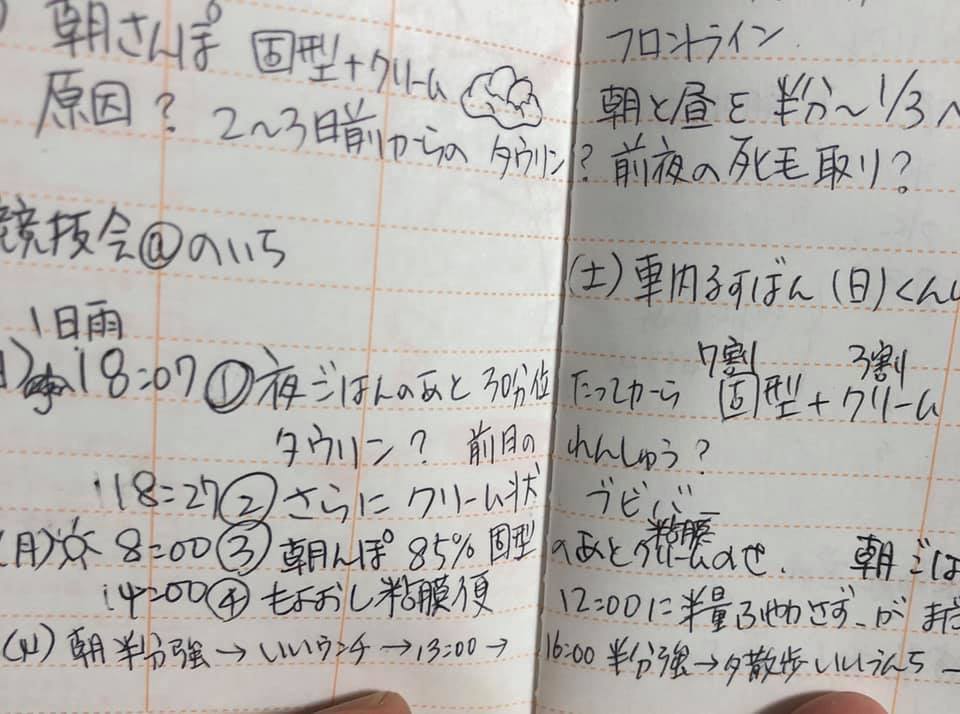 朝さんぽ 固型+クリーム
原因? 2〜3日前からのタウリン?
競技会@のいち
1日雨
18:07 ① 夜ごはんのあと30分位たってから 固型+クリーム
7割 3割
タウリン? 前日のれんしゅう?
18:27 ② さらにクリーム状 ブビバー
(月) 8:00 ③ 朝んぽ 85% 固型のあとクリームのせ. 朝ごは
粘膜
14:00 ④ もよおし粘膜便 12:00に半量ふやかさず、がまだ
(火) 朝半分強→いいウンチ→13:00→16:00 半分強→夕散歩いいうんち→
フロントライン
朝と昼を半分〜1/3へ
前夜の死毛取り?
(土)車内るすばん (日)くんし